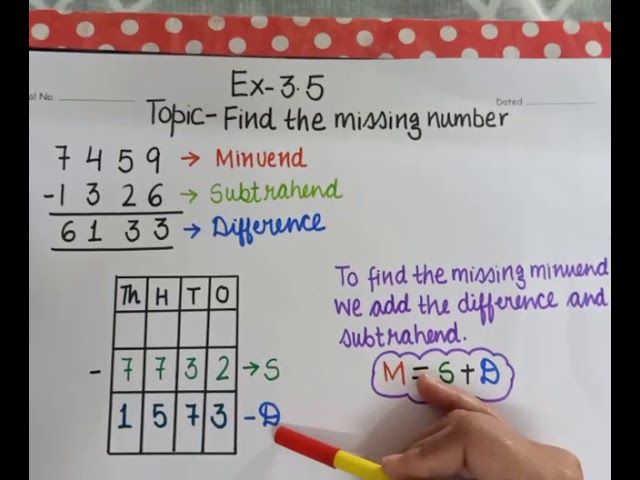 Ex-3.5
al No. Dated
Topic- Find the missing number
7 4 5 9 → Minuend
-1 3 2 6 → Subtrahend
6 1 3 3 → Difference
To find the missing minuend
we add the difference and
subtrahend.
M = S + D
Th H T O
- 7 7 3 2 → S
1 5 7 3 - D